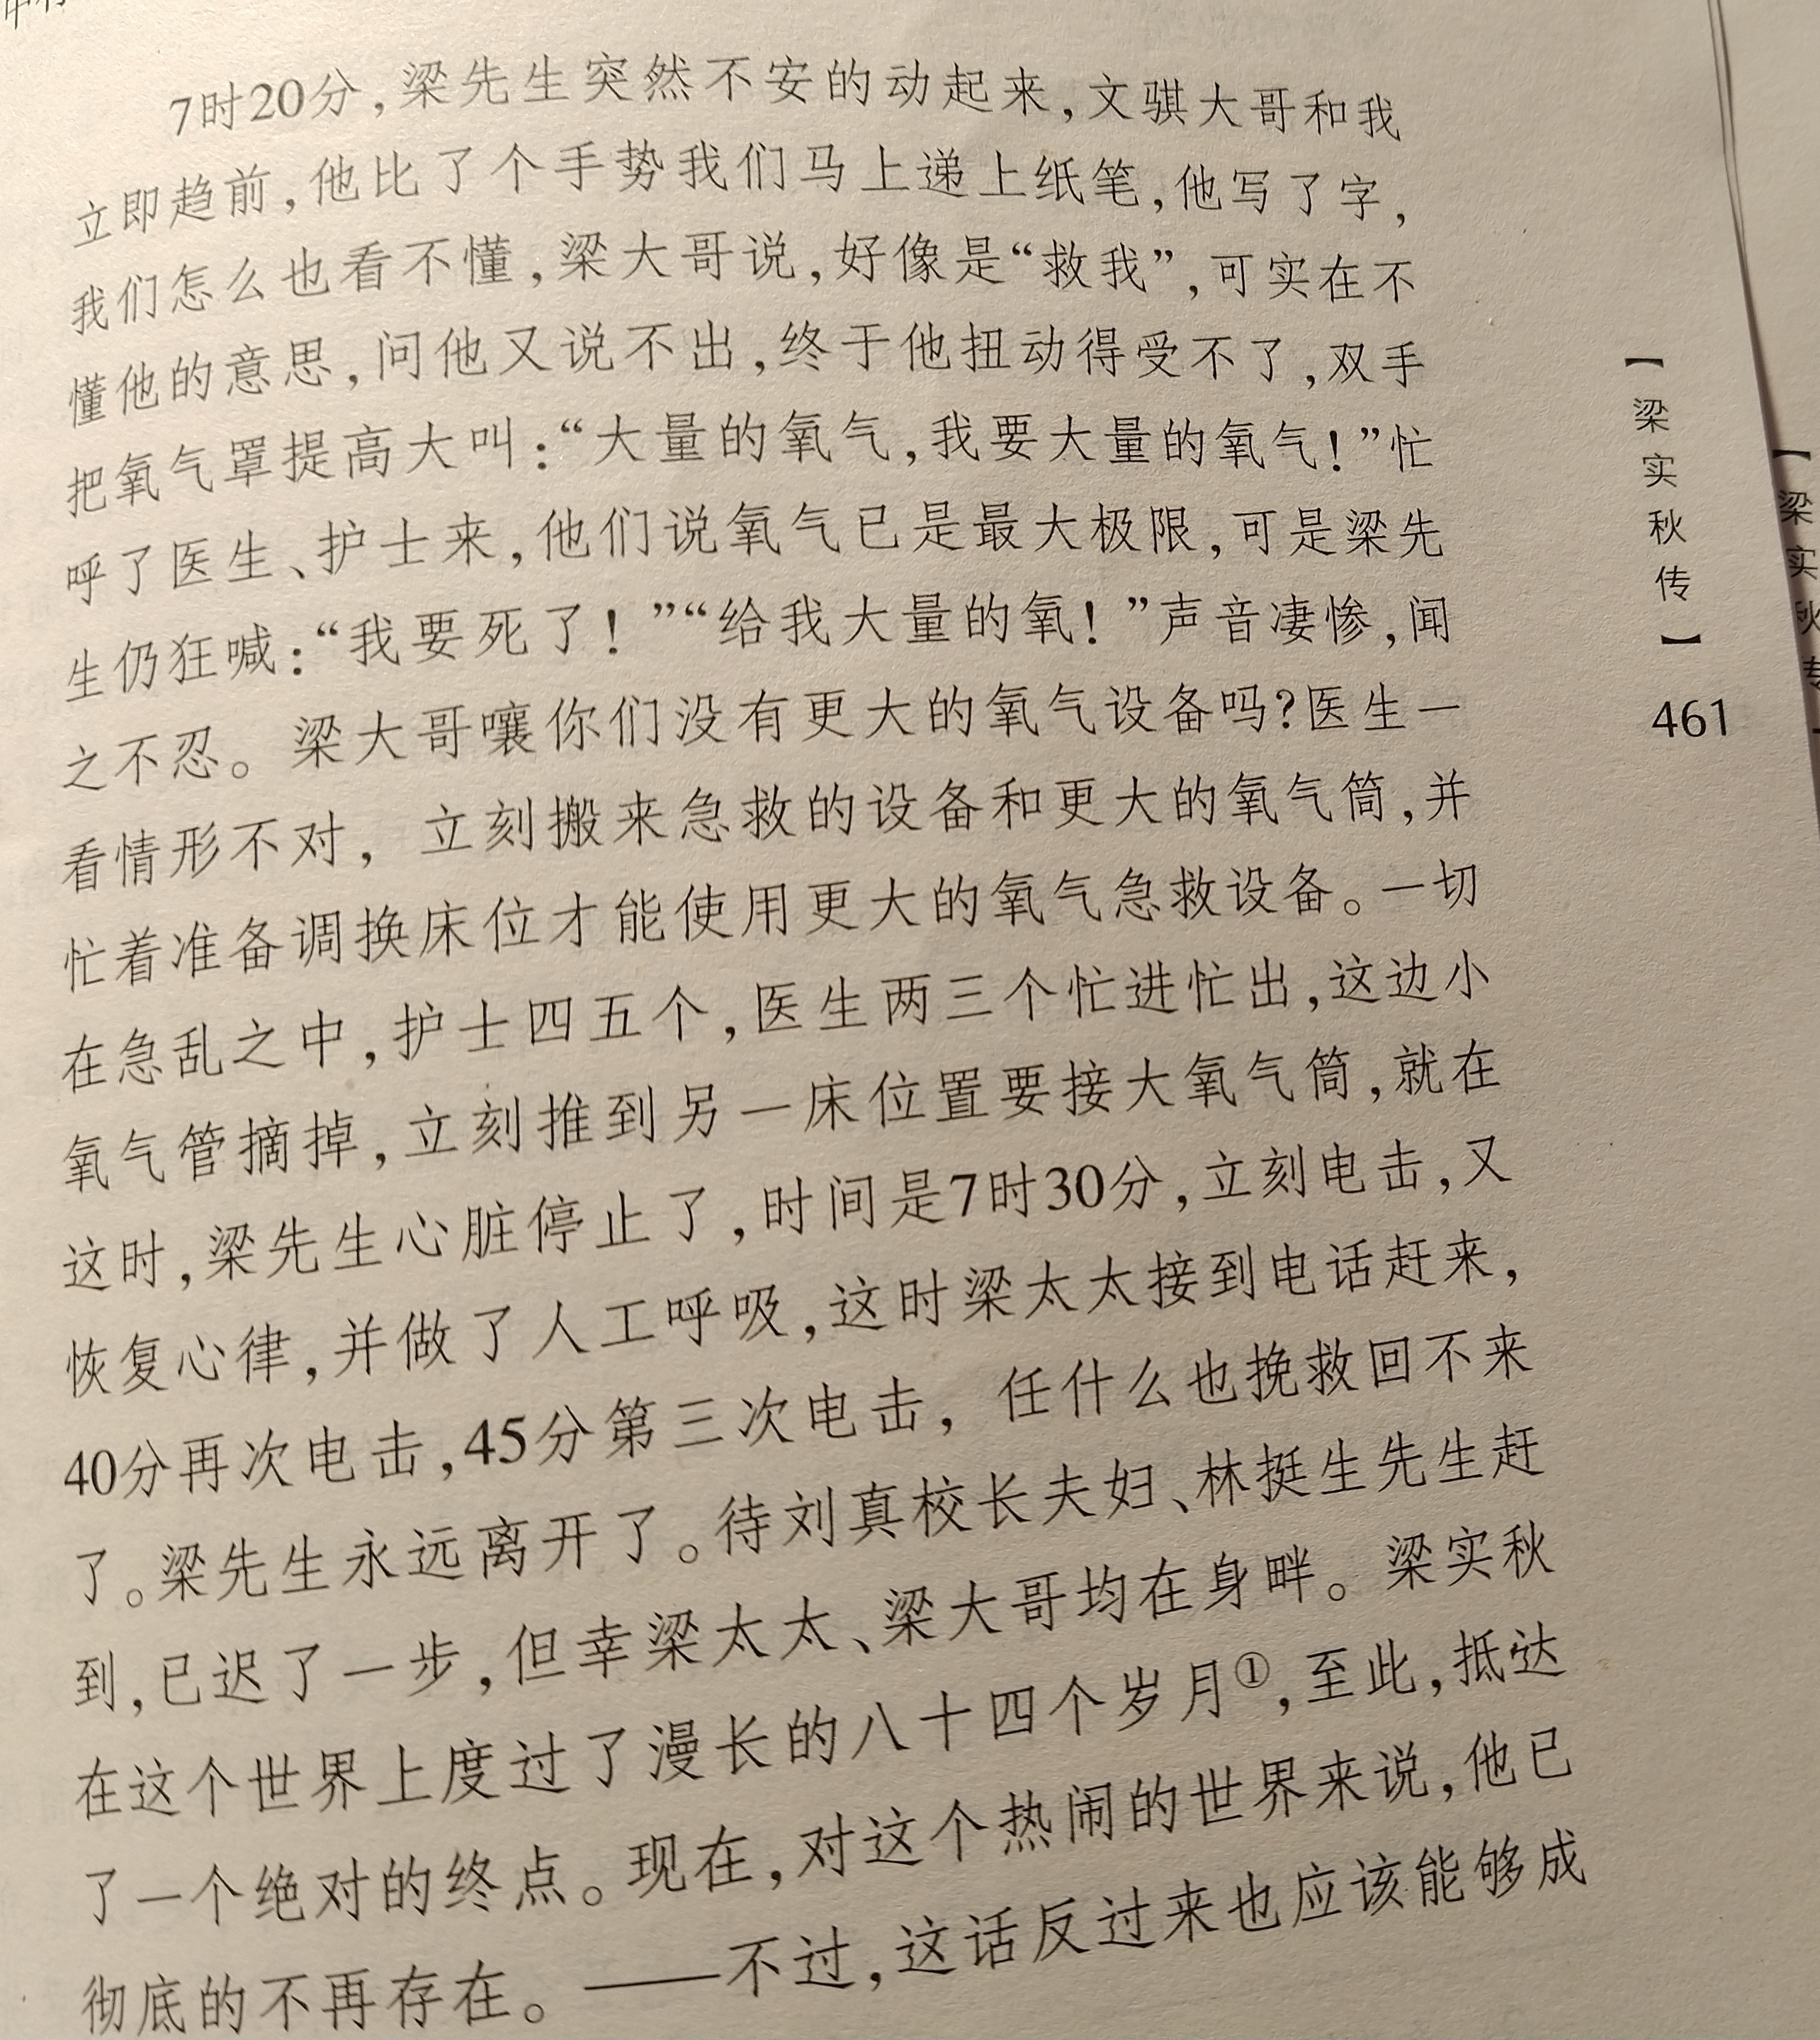 7时20分,梁先生突然不安的动起来,文骐大哥和我
立即趋前,他比了个手势我们马上递上纸笔,他写了字,
我们怎么也看不懂,梁大哥说,好像是“救我”,可实在不
懂他的意思,问他又说不出,终于他扭动得受不了,双手
把氧气罩提高大叫:“大量的氧气,我要大量的氧气!”忙
呼了医生、护士来,他们说氧气已是最大极限,可是梁先
生仍狂喊:“我要死了!”“给我大量的氧!”声音凄惨,闻
之不忍。梁大哥嚷你们没有更大的氧气设备吗?医生一
看情形不对,立刻搬来急救的设备和更大的氧气筒,并
忙着准备调换床位才能使用更大的氧气急救设备。一切
在急乱之中,护士四五个,医生两三个忙进忙出,这边小
氧气管摘掉,立刻推到另一床位置要接大氧气筒,就在
这时,梁先生心脏停止了,时间是7时30分,立刻电击,又
恢复心律,并做了人工呼吸,这时梁太太接到电话赶来,
40分再次电击,45分第三次电击,任什么也挽救回不来
了。梁先生永远离开了。待刘真校长夫妇、林挺生先生赶
到,已迟了一步,但幸梁太太、梁大哥均在身畔。梁实秋
在这个世界上度过了漫长的八十四个岁月①,至此,抵达
了一个绝对的终点。现在,对这个热闹的世界来说,他已
彻底的不再存在。——不过,这话反过来也应该能够成
【梁实秋传】
461
【梁实秋